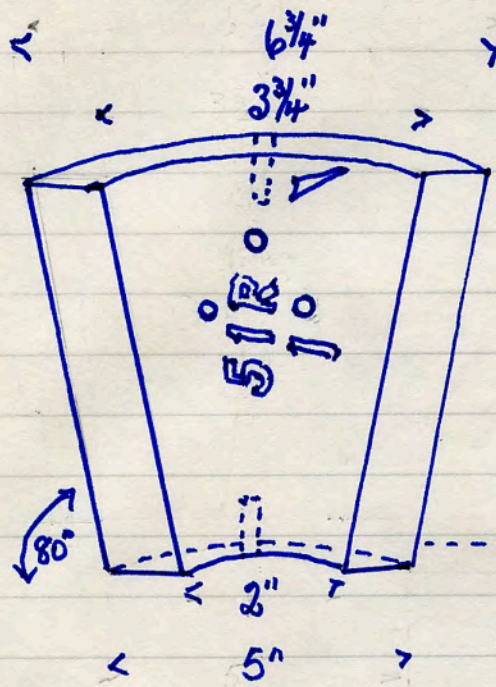 6 3/4"
3 3/4"
51R
80°
2"
5"